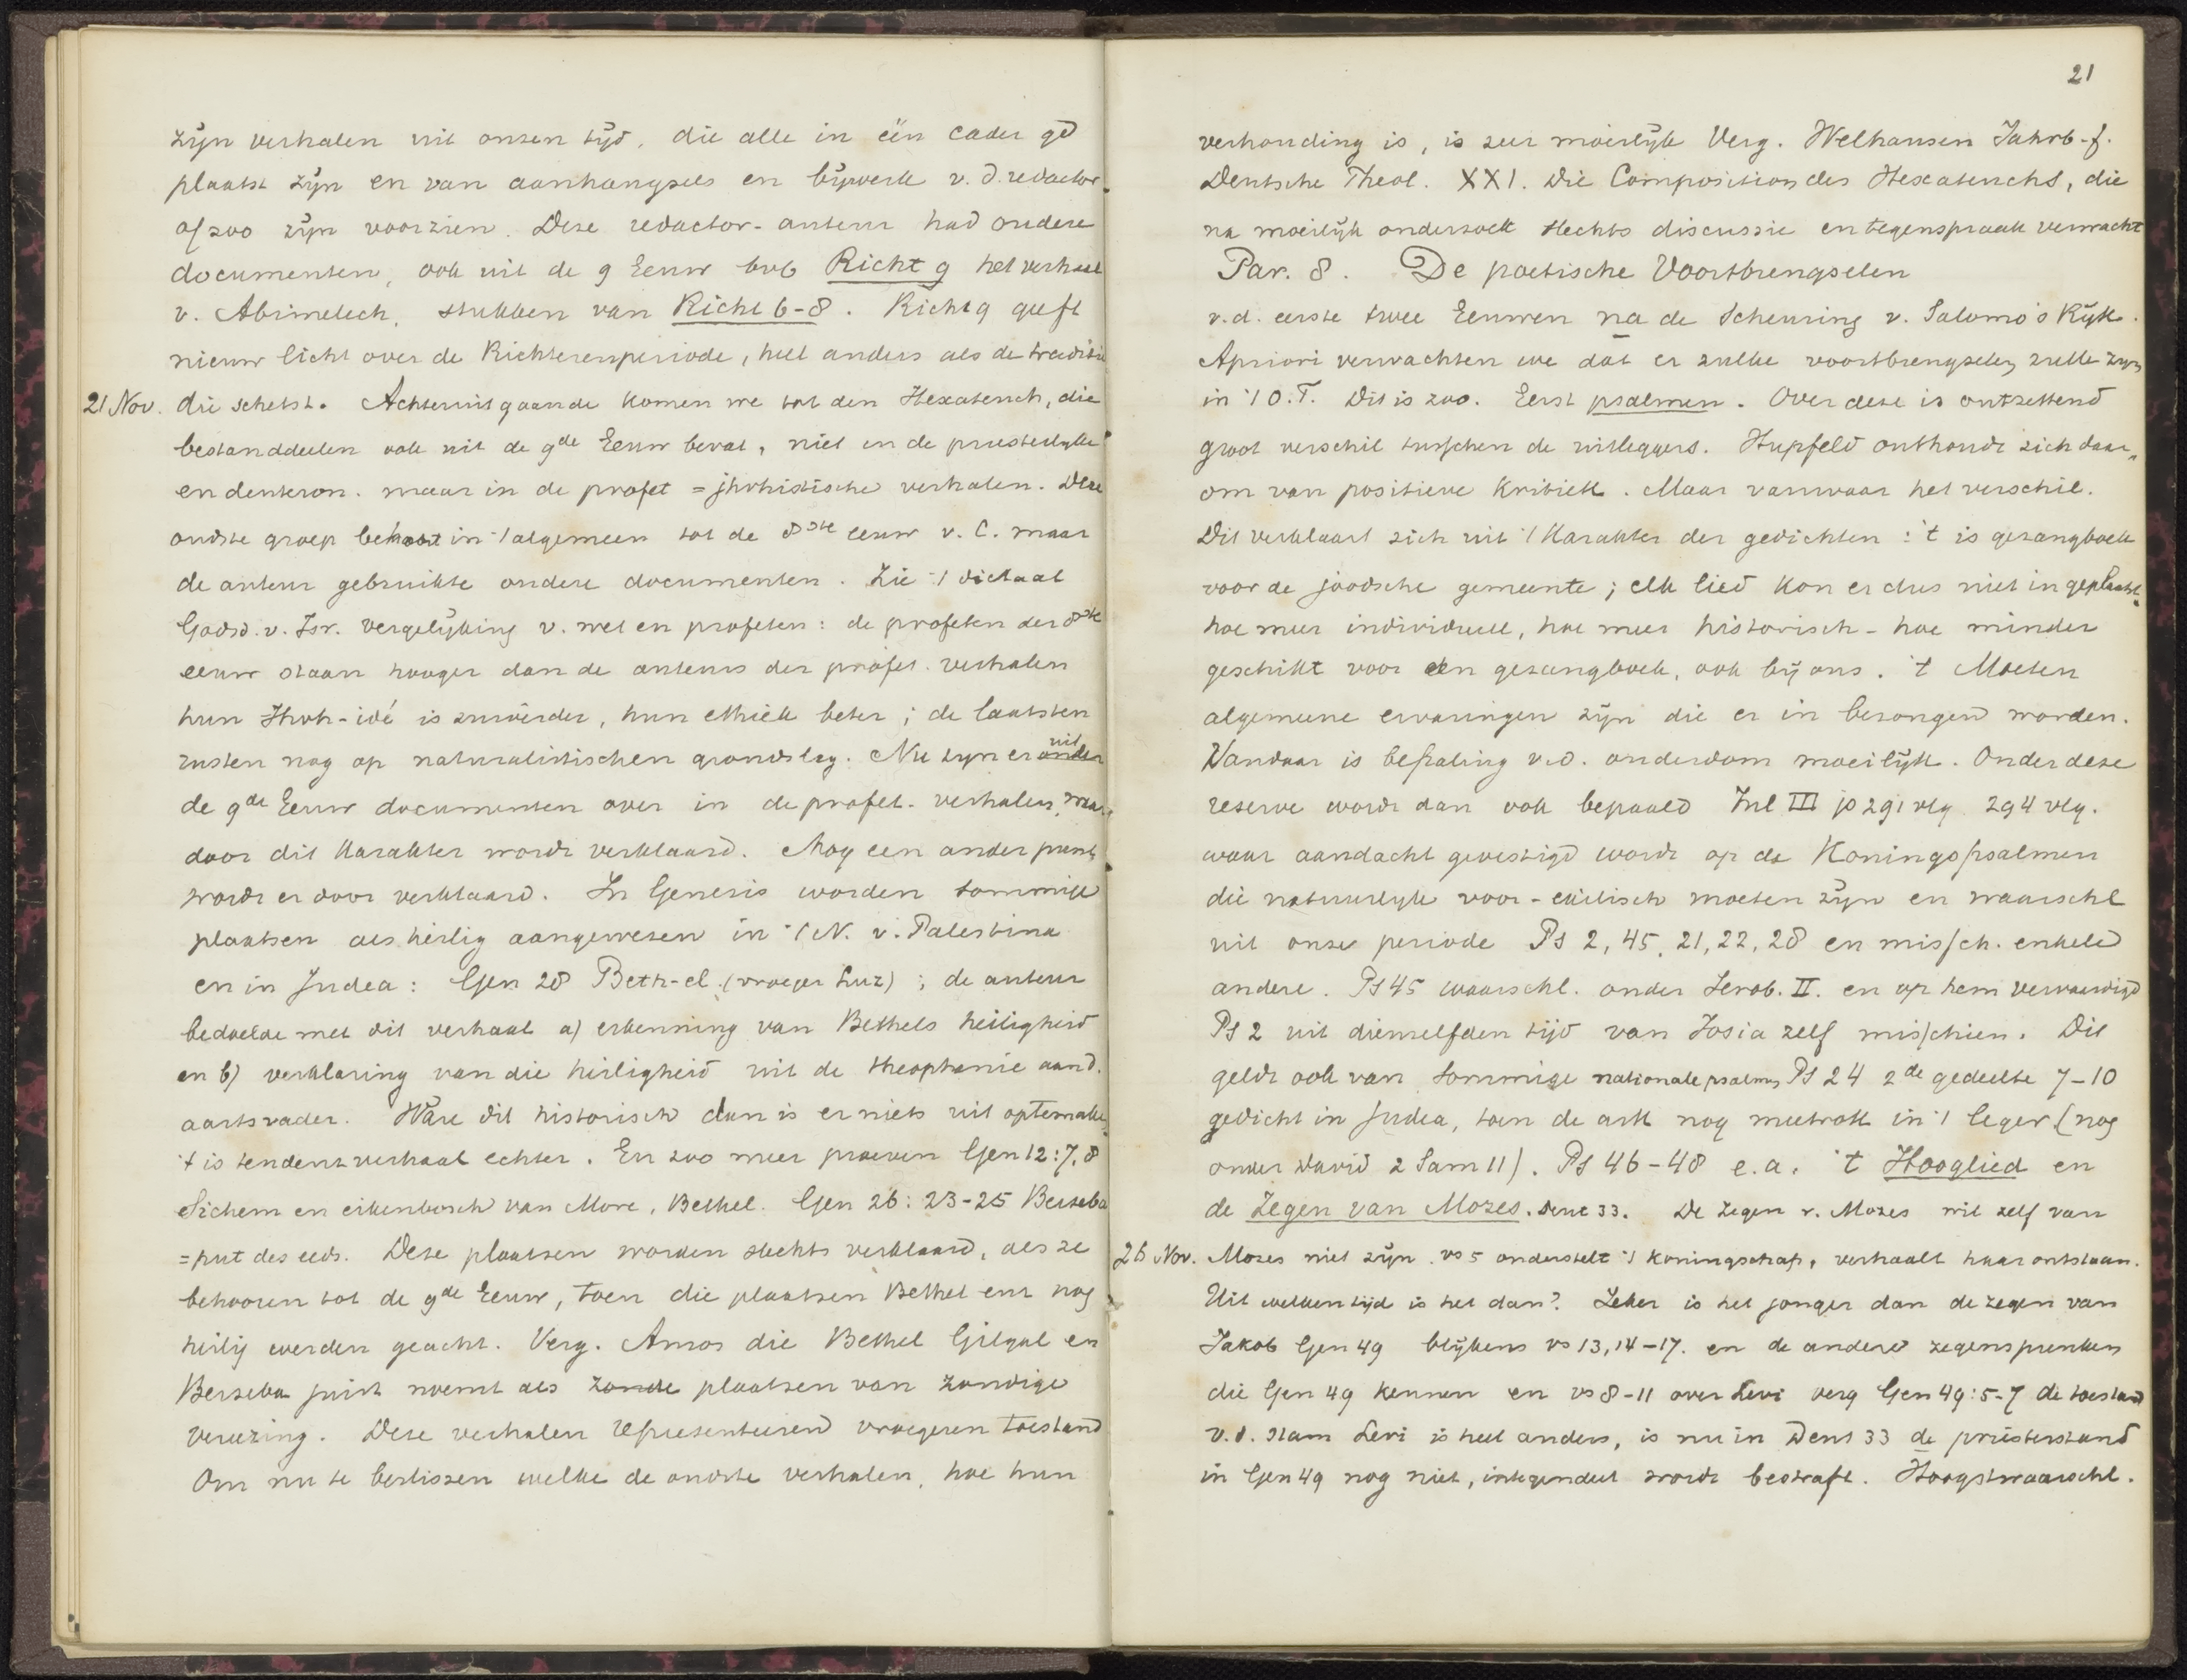 zijn verhalen uit onzen tijd, die alle in één cader ge
plaatst zijn en van aanhangsels en bijwerk v. d. redactor
of zoo zijn voorzien. Deze redactor-auteur had oudere
documenten, ook uit de 9 Eeuw bvb Richt 9 het verhaal
v. Abimelech, stukken van Richt 6-8. Richt 9 geeft
nieuw licht over de Richterenperiode, heel anders als de traditie
21 Nov. die schetst. Achteruitgaande komen we tot den Hexateuch, die
bestanddeelen ook uit de 9de Eeuw bevat, niet in de priesterlijke
en deuteron. maar in de profet = jhvhistische verhalen. Deze
oudste groep behoort in 't algemeen tot de 8ste eeuw v. C. maar
de auteur gebruikte oudere documenten. Zie 't dictaat
Godsd. v. Isr. vergelijking v. wet en profeten: de profeten der 8ste
eeuw staan hooger dan de auteurs der profet. verhalen
hun Jhvh-idé is zuiverder, hun ethiek beter; de laatsten
rusten nog op naturalistischen grondslag. Nu zijn er onder uit
de 9de Eeuw documenten over in de profet. verhalen, waar
door dit karakter wordt verklaard. Nog een ander punt
wordt er door verklaard. In Genesis worden sommige
plaatsen als heilig aangewezen in 't N. v. Palestina
en in Judea: Gen 28 Beth-el. (vroeger Luz); de auteur
bedoelde met dit verhaal a) erkenning van Bethels heiligheid
en b) verklaring van die heiligheid uit de theophanie aan d.
aartsvader. Ware dit historisch dan is er niets uit optemaken
't is tendenzverhaal echter. En zoo meer proeven Gen 12:7,8
Sichem en eikenbosch van More, Bethel. Gen 26: 23-25 Berseba
= put des eeds. Deze plaatsen worden slechts verklaard, als ze
behooren tot de 9de Eeuw, toen die plaatsen Bethel enz nog
heilig werden geacht. Verg. Amos die Bethel Gilgal en
Berseba juist noemt als zonde plaatsen van zondige
vereering. Deze verhalen representeeren vroegeren toestand
Om nu te beslissen welke de oudste verhalen, hoe hun
21
verhouding is, is zeer moeilijk Verg. Welhausen Jahrb. f.
Deutsche Theol. XXI. Die Composition des Hexateuchs, die
na moeilijk onderzoek slechts discussie en tegenspraak verwacht
Par. 8. De poetische Voortbrengselen
v.d. eerste twee Eeuwen na de Scheuring v. Salomo's Rijk.
Apriori verwachten we dat er zulke voortbrengselen zulle zijn
in 't O.T. Dit is zoo. Eerst psalmen. Over deze is ontzettend
groot verschil tusschen de uitleggers. Hupfeld onthoudt zich daar
om van positieve kritiek. Maar vanwaar het verschil.
Dit verklaart zich uit 't karakter der gedichten: 't is gezangboek
voor de joodsche gemeente; elk lied kon er dus niet in geplaatst
hoe meer individueel, hoe meer historisch - hoe minder
geschikt voor een gezangboek, ook bij ons. 't Moeten
algemeene ervaringen zijn die er in bezongen worden.
Vandaar is bepaling v.d. ouderdom moeilijk. Onder deze
reserve wordt dan ook bepaald Inl III p 291 vlg. 294 vlg.
waar aandacht gevestigd wordt op de Koningspsalmen
die natuurlijk voor-exilisch moeten zijn en waarschl
uit onze periode Ps 2, 45, 21, 22, 28 en missch. enkele
andere. Ps 45 waarschl. onder Jerob. II. en op hem vervaardigd
Ps 2 uit diezelfden tijd van Josia zelf misschien. Dit
geldt ook van sommige nationale psalmen Ps 24 2de gedeelte 7-10
gedicht in Judea, toen de ark nog meetrok in 't leger (nog
onder David 2 Sam 11). Ps 46-48 e.a. 't Hooglied en
de Zegen van Mozes. Deut 33. De Zegen v. Mozes wil zelf van
26 Nov. Mozes niet zijn. vs 5 onderstelt 't koningschap, verhaalt haar ontstaan.
Uit welken tijd is het dan? Zeker is het jonger dan de zegen van
Jakob Gen 49 blijkens vs 13, 14-17. en de andere zegenspreuken
die Gen 49 kennen en vs 8-11 over Levi verg Gen 49:5-7 de toestand
v. d. stam Levi is heel anders, is nu in Deut 33 de priesterstand
in Gen 49 nog niet, integendeel wordt bestraft. Hoogstwaarschl.